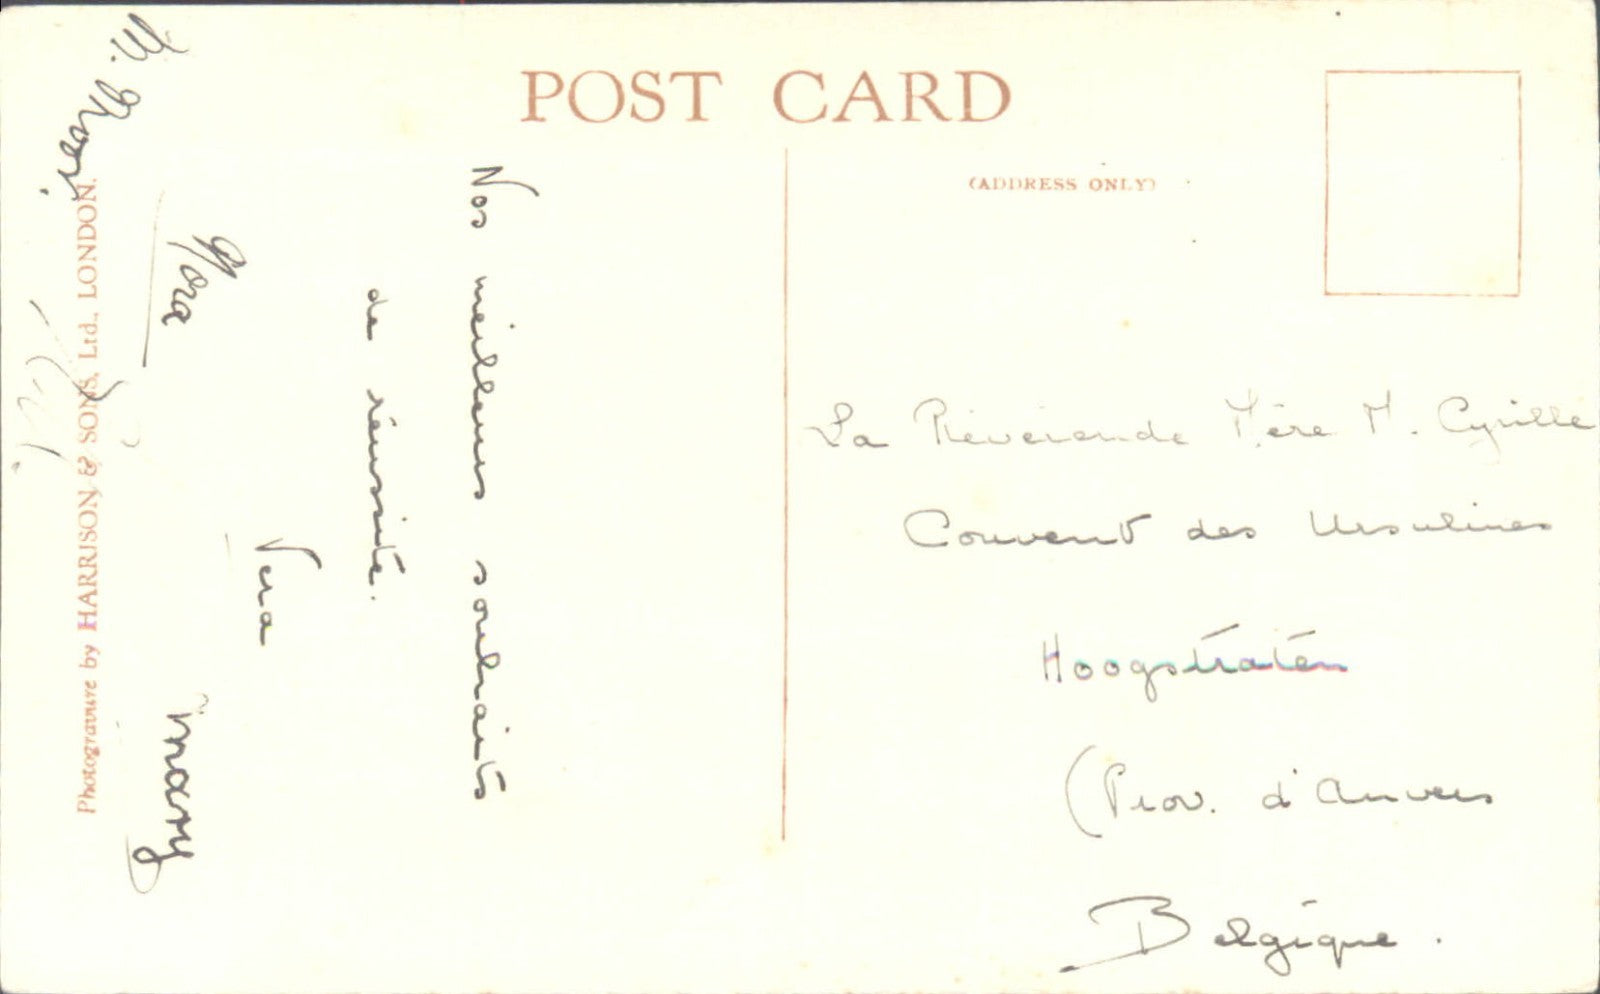 POST CARD
(ADDRESS ONLY)
Nos meilleurs souhaits
de réussite.
Vera
Nora
Mary
Photogravure by HARRISON & SONS, Ltd., LONDON.
La Révérende Mère M. Cyrille
Couvent des Ursulines
Hoogstraten
(Prov. d'Anvers
Belgique.